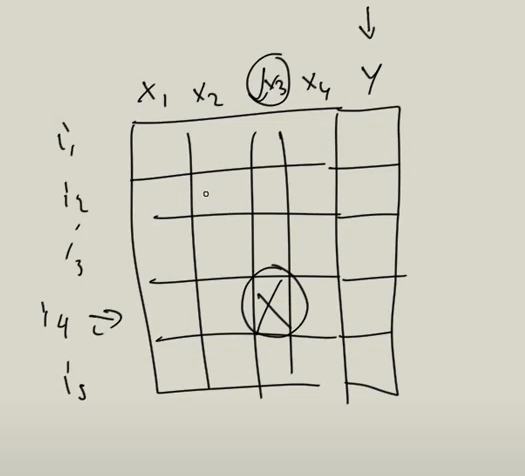 x₁ x₂ x₃ x₄ Y
i₁
i₂
i₃
i₄
X
i₅